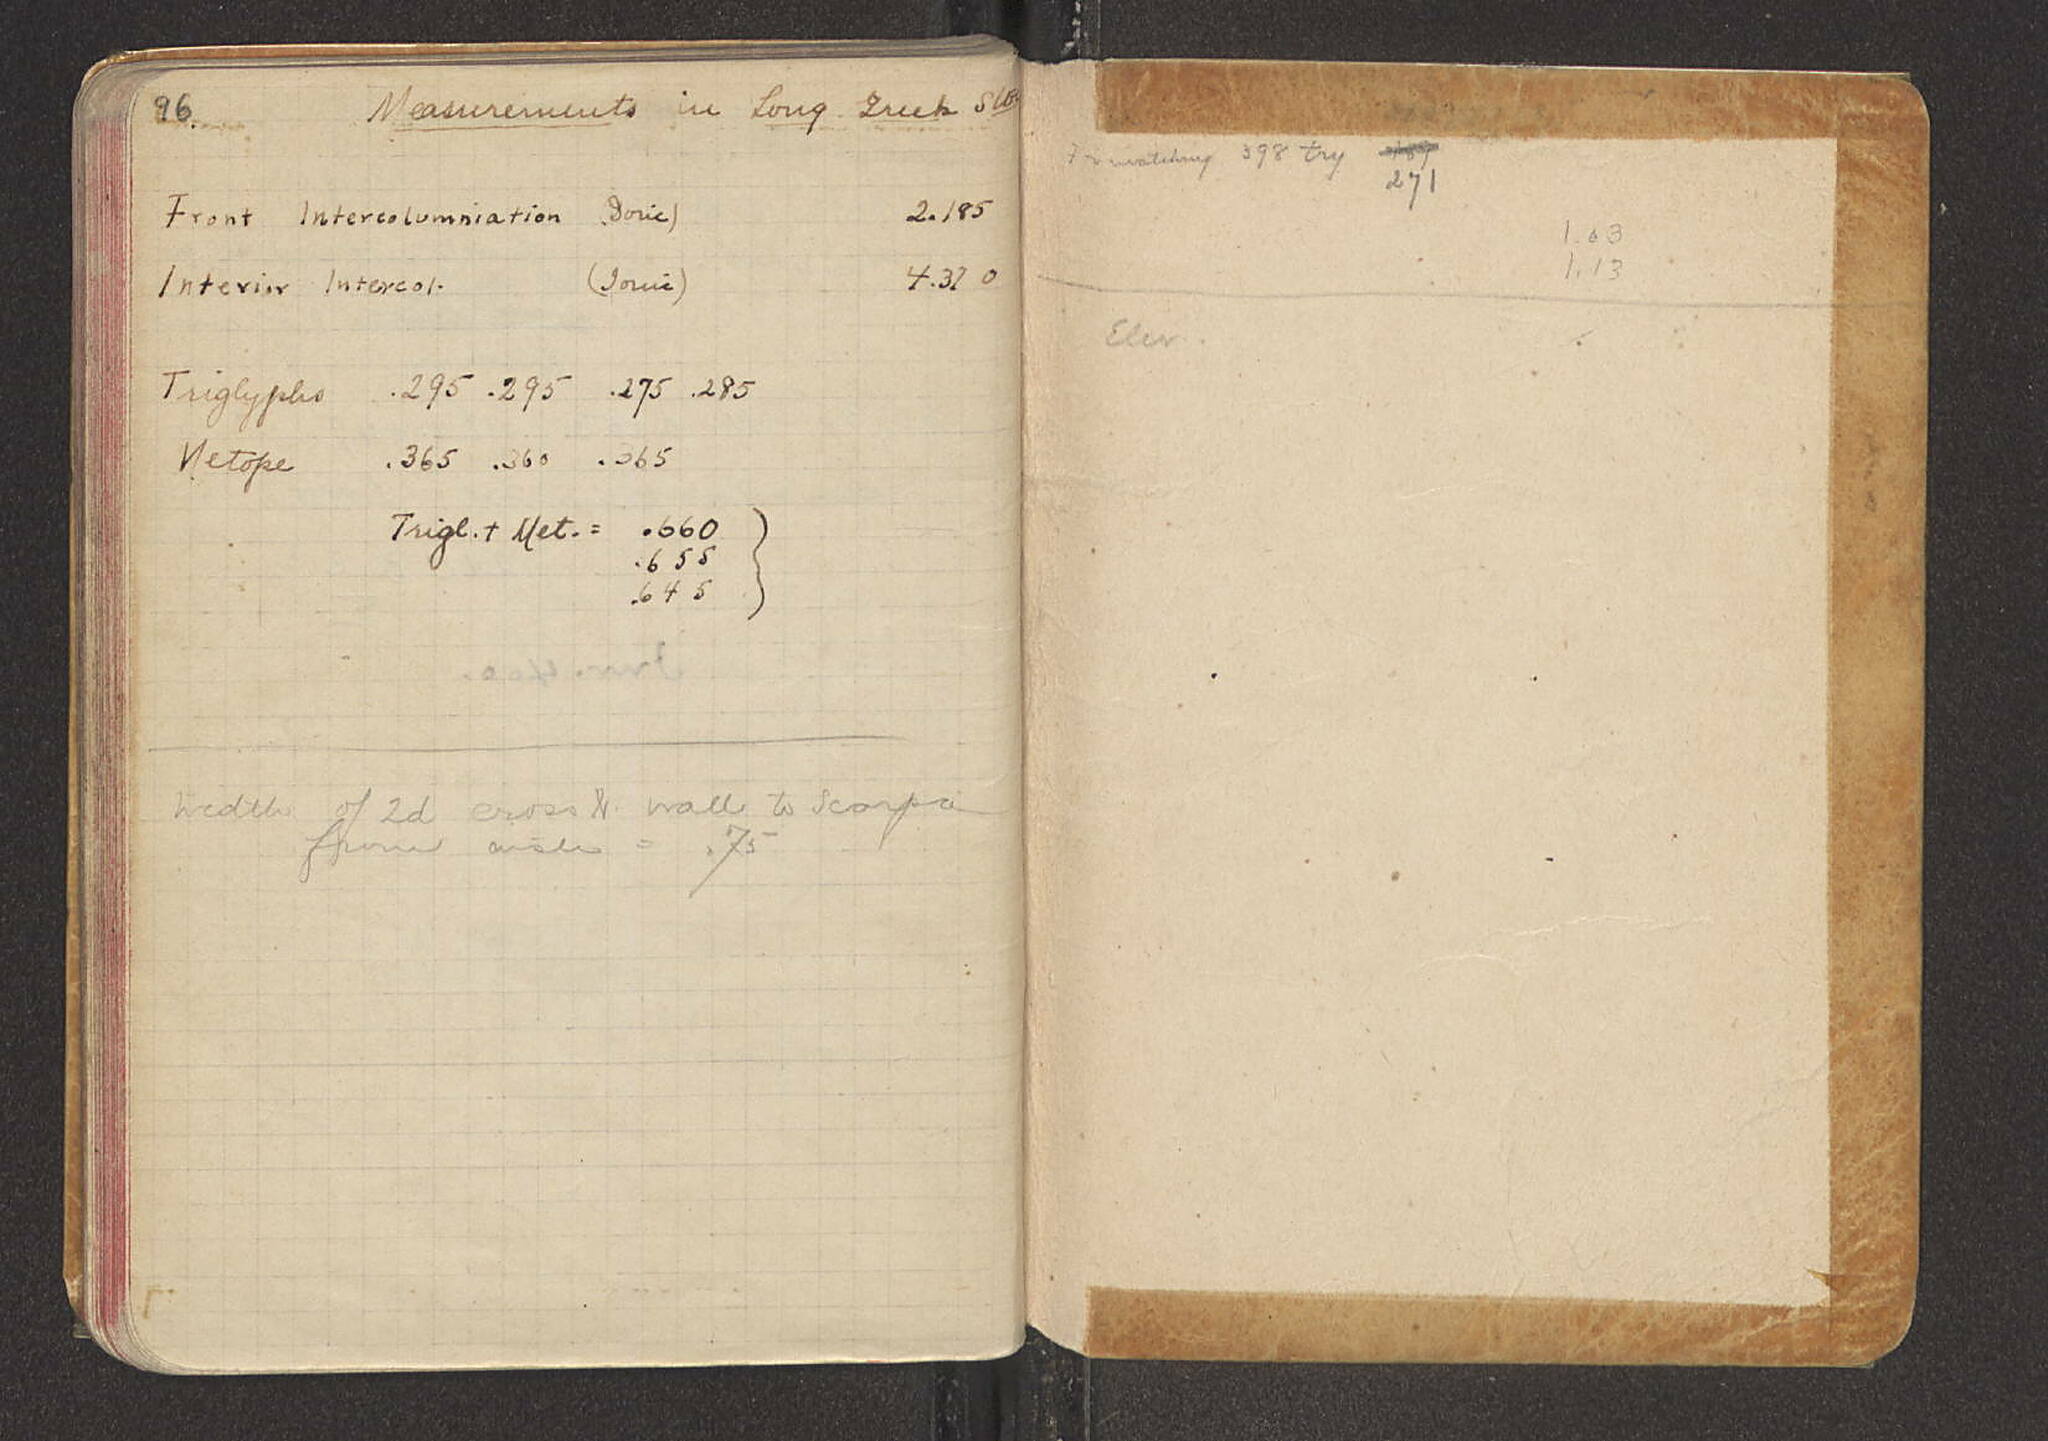 96.
Measurements in Long Greek Stoa
Front Intercolumniation (Doric) 2.185
Interior Intercol. (Ionic) 4.370
Triglyphs .295 .295 .275 .285
Metope .365 .360 .365
Trigl. + Met. = .660
.655
.645
Inv. 400.
Width of 2d cross wall to Scarpa
from aisle = .75
For matching 398 try
271
1.03
1.13
Elev.